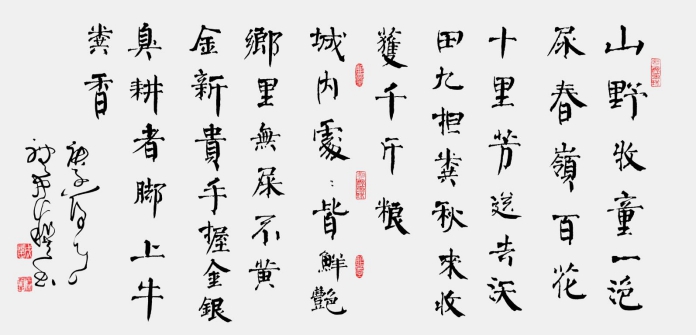 山野牧童一泡
尿春嶺百花
十里芳送去沃
田九担糞秋来收
獲千斤粮
城内處〻皆鮮艷
鄉里無屎不黄
金新貴手握金銀
臭耕者脚上牛
糞香
庚子